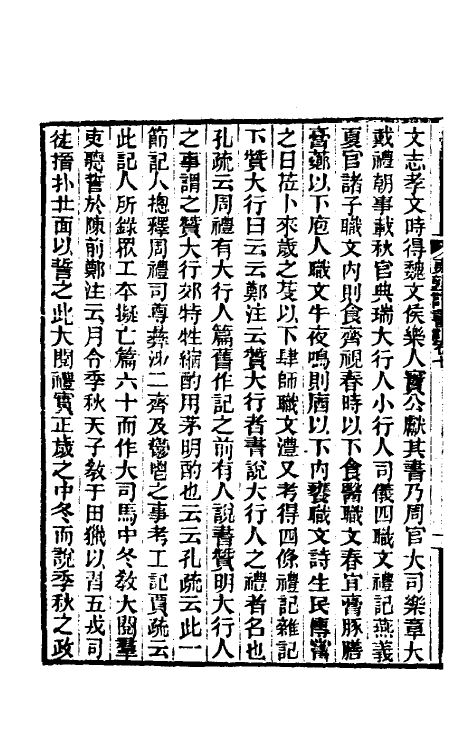 文志孝文時得魏文侯樂人竇公獻其書乃周官大司樂章大
戴禮朝事載秋官典瑞大行人小行人司儀四職文禮記燕義
夏官諸子職文內則食齊視春時以下食醫職文春宜膏豚膳
膏薌以下庖人職文牛夜鳴則庮以下內饔職文詩生民傳嘗
之日莅卜來歲之芟以下肆師職文澧又考得四條禮記雜記
下贊大行曰云云鄭注云贊大行者書說大行人之禮者名也
孔疏云周禮有大行人篇舊作記之前有人說書贊明大行人
之事謂之贊大行郊特牲縮酌用茅明酌也云云孔疏云此一
節記人總釋周禮司尊彝沙二齊及鬱鬯之事考工記賈疏云
此記人所錄眾工本擬亡篇六十而作大司馬中冬教大閱羣
吏聽誓於陳前鄭注云月令季秋天子教于田獵以習五戎司
徒搢扑北面以誓之此大閱禮實正歲之中冬而說季秋之政